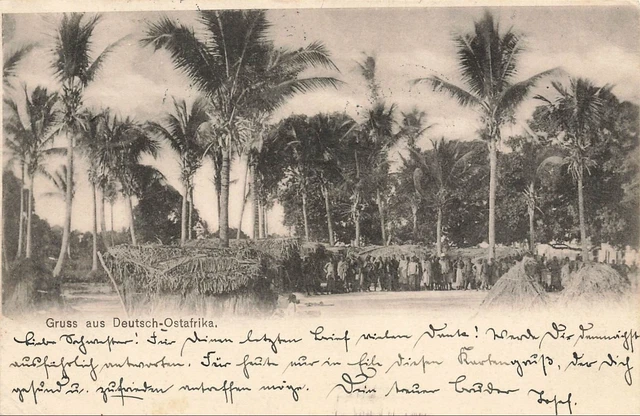 Gruss aus Deutsch-Ostafrika.
Liebe Schwester! Für Deinen letzten Brief vielen Dank! Werde Dir demnächst
ausführlich antworten. Für heute nur in Eile diesen Kartengruß, der Dich
gesund u. zufrieden antreffen möge. Dein treuer Bruder
Josef.